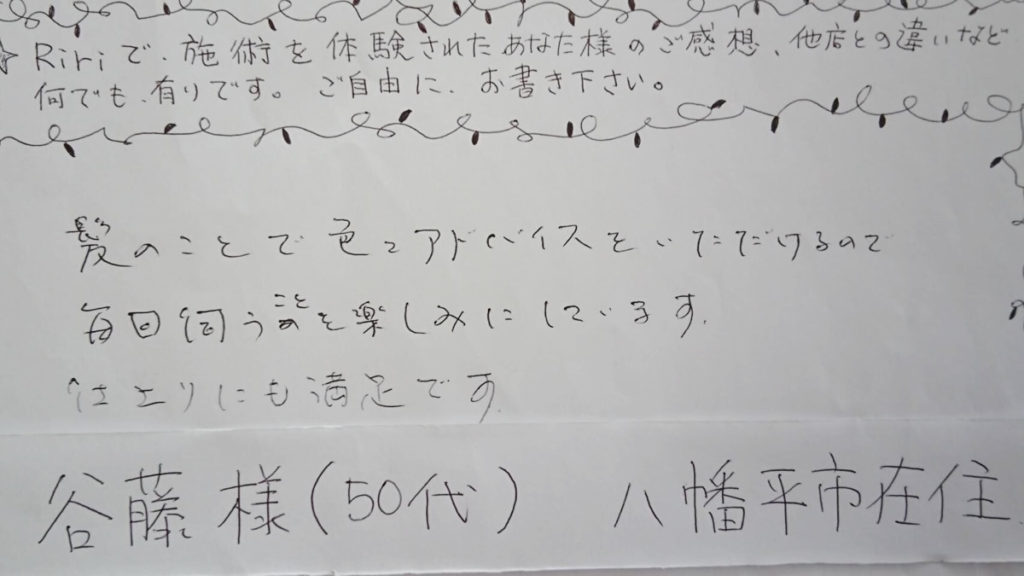 ☆ Ririで、施術を体験されたあなた様のご感想、他店との違いなど
何でも、有りです。ご自由に、お書き下さい。
髪のことで色々アドバイスをいただけるので
毎回伺うことを楽しみにしています。
仕上りにも満足です。
谷藤様(50代) 八幡平市在住